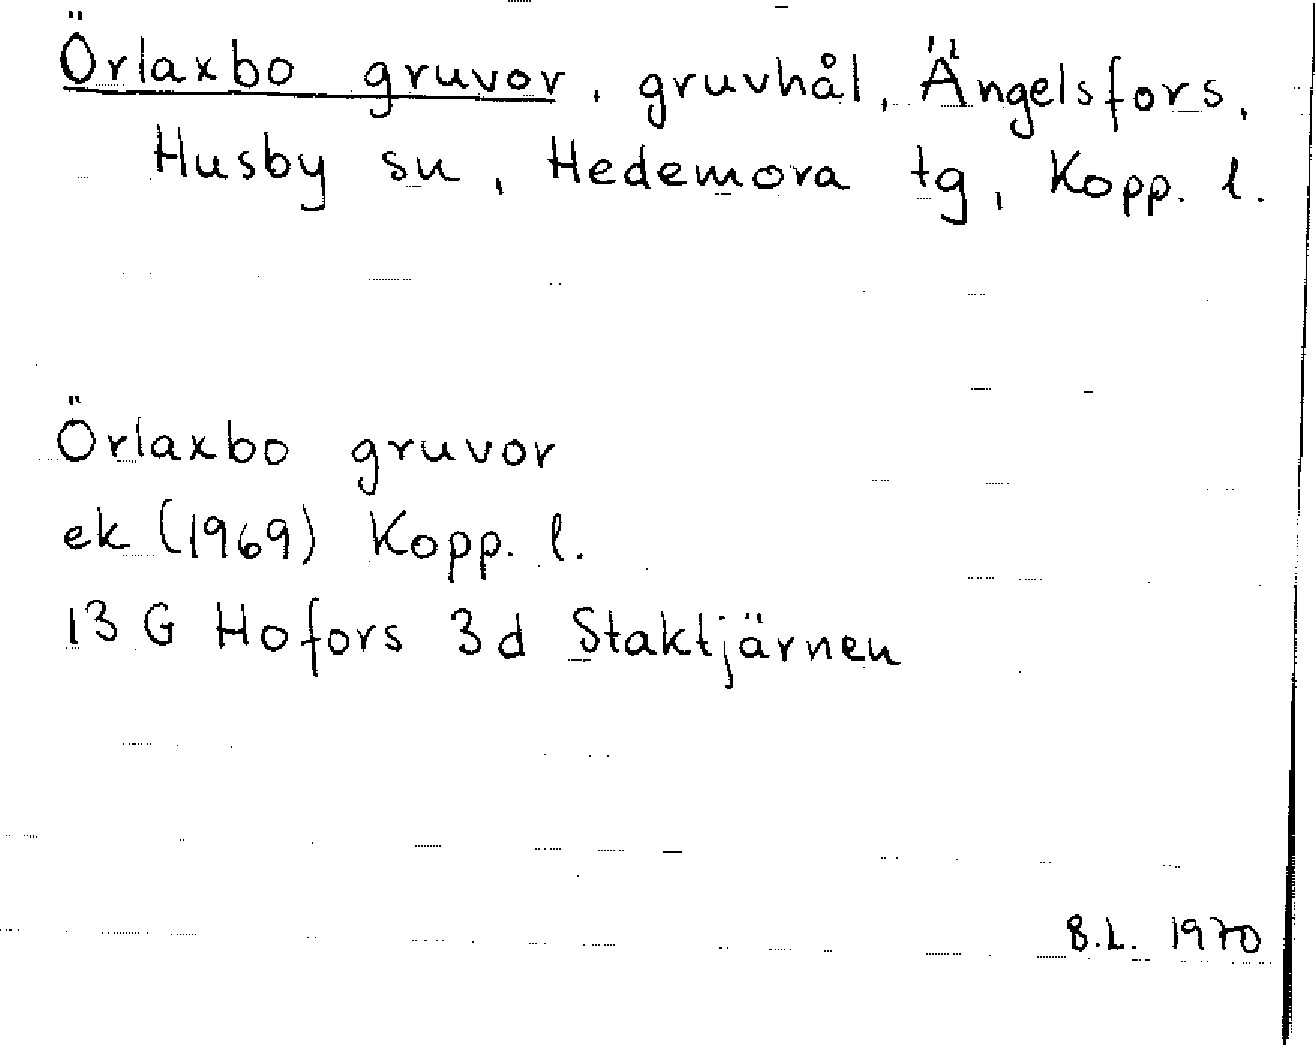 Örlaxbo gruvor, gruvhål, Ängelsfors,
Husby sn, Hedemora tg, Kopp. l.
Örlaxbo gruvor
ek (1969) Kopp. l.
13 G Hofors 3d Staktjärnen
B.L. 1970